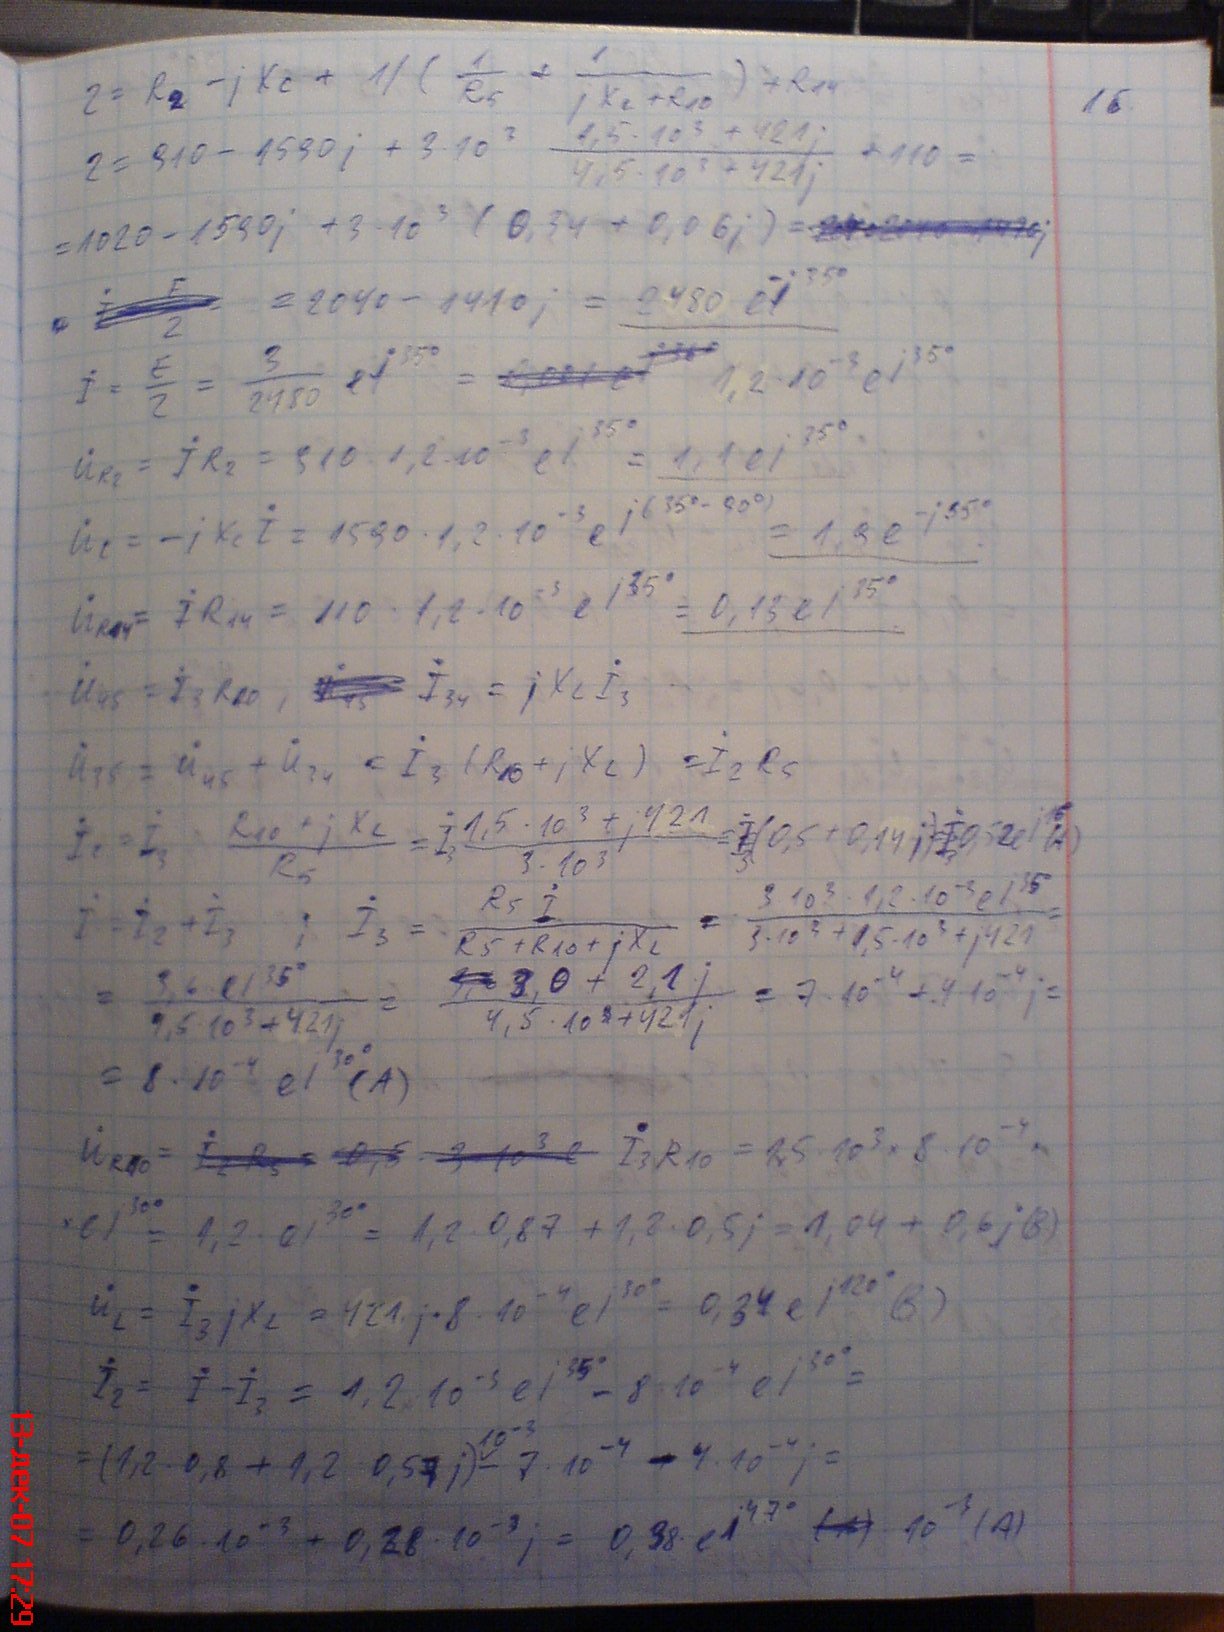 16.
Z = R2 - jXc + 1/( 1/R5 + 1/(jXL + R10) ) + R14
Z = 910 - 1590j + 3·10^3 (1,5·10^3 + 421j)/(4,5·10^3 + 421j) + 110 =
= 1020 - 1590j + 3·10^3 (0,34 + 0,06j) =
= 2040 - 1410j = 2480 e^-j35°
İ = E/Z = 3/2480 e^j35° = 1,2·10^-3 e^j35°
U̇R2 = İR2 = 910·1,2·10^-3 e^j35° = 1,1 e^j35°
U̇c = -jXc İ = 1590·1,2·10^-3 e^j(35°-90°) = 1,9 e^-j55°
U̇R14 = İR14 = 110·1,2·10^-3 e^j35° = 0,13 e^j35°
U̇45 = İ3R10 , İ34 = jXL İ3
U̇35 = U̇45 + U̇34 = İ3 (R10 + jXL) = İ2R5
İ2 = İ3 (R10 + jXL)/R5 = İ3 (1,5·10^3 + j421)/(3·10^3) = İ3(0,5 + 0,14j) = İ3 0,52 e^j16° (A)
İ = İ2 + İ3 ; İ3 = R5 İ/(R5 + R10 + jXL) = (3·10^3·1,2·10^-3 e^j35°)/(3·10^3 + 1,5·10^3 + j421) =
= 3,6·e^j35°/(4,5·10^3 + 421j) = (3,0 + 2,1j)/(4,5·10^3 + 421j) = 7·10^-4 + 4·10^-4 j =
= 8·10^-4 e^j30° (A)
U̇R10 = İ3R10 = 1,5·10^3 × 8·10^-4 ×
× e^j30° = 1,2·e^j30° = 1,2·0,87 + 1,2·0,5j = 1,04 + 0,6j (В)
U̇L = İ3 jXL = 421·j·8·10^-4 e^j30° = 0,34 e^j120° (В)
İ2 = İ - İ3 = 1,2·10^-3 e^j35° - 8·10^-4 e^j30° =
= (1,2·0,8 + 1,2·0,57j)·10^-3 - 7·10^-4 - 4·10^-4 j =
= 0,26·10^-3 + 0,28·10^-3 j = 0,38·e^j47° · 10^-3 (A)
13-дек-07 17:29